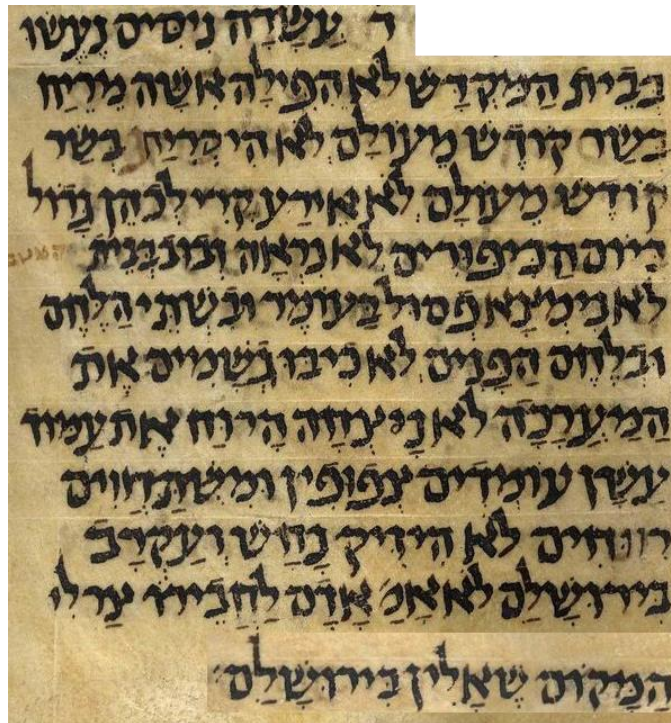 ד עשרה ניסים נעשו
בבית המקדש לא הפילה אשה מריח
בשר קודש מעולם לא היסריח בשר
קודש מעולם לא אירע קרי לכהן גדול
ביום הכיפורים לא נראה זבוב בבית
לא נימצא פסול בעומר ובשתי הלחם
ובלחם הפנים לא כיבו גשמים את
המערכה לא נצחה הרוח את עמוד
עשן עומדים צפופין ומשתחווים
רווחים לא היזיק נחש ועקרב
בירושלם לא אמ׳ אדם לחבירו צר לי
המקום שאלין בירושלם׳